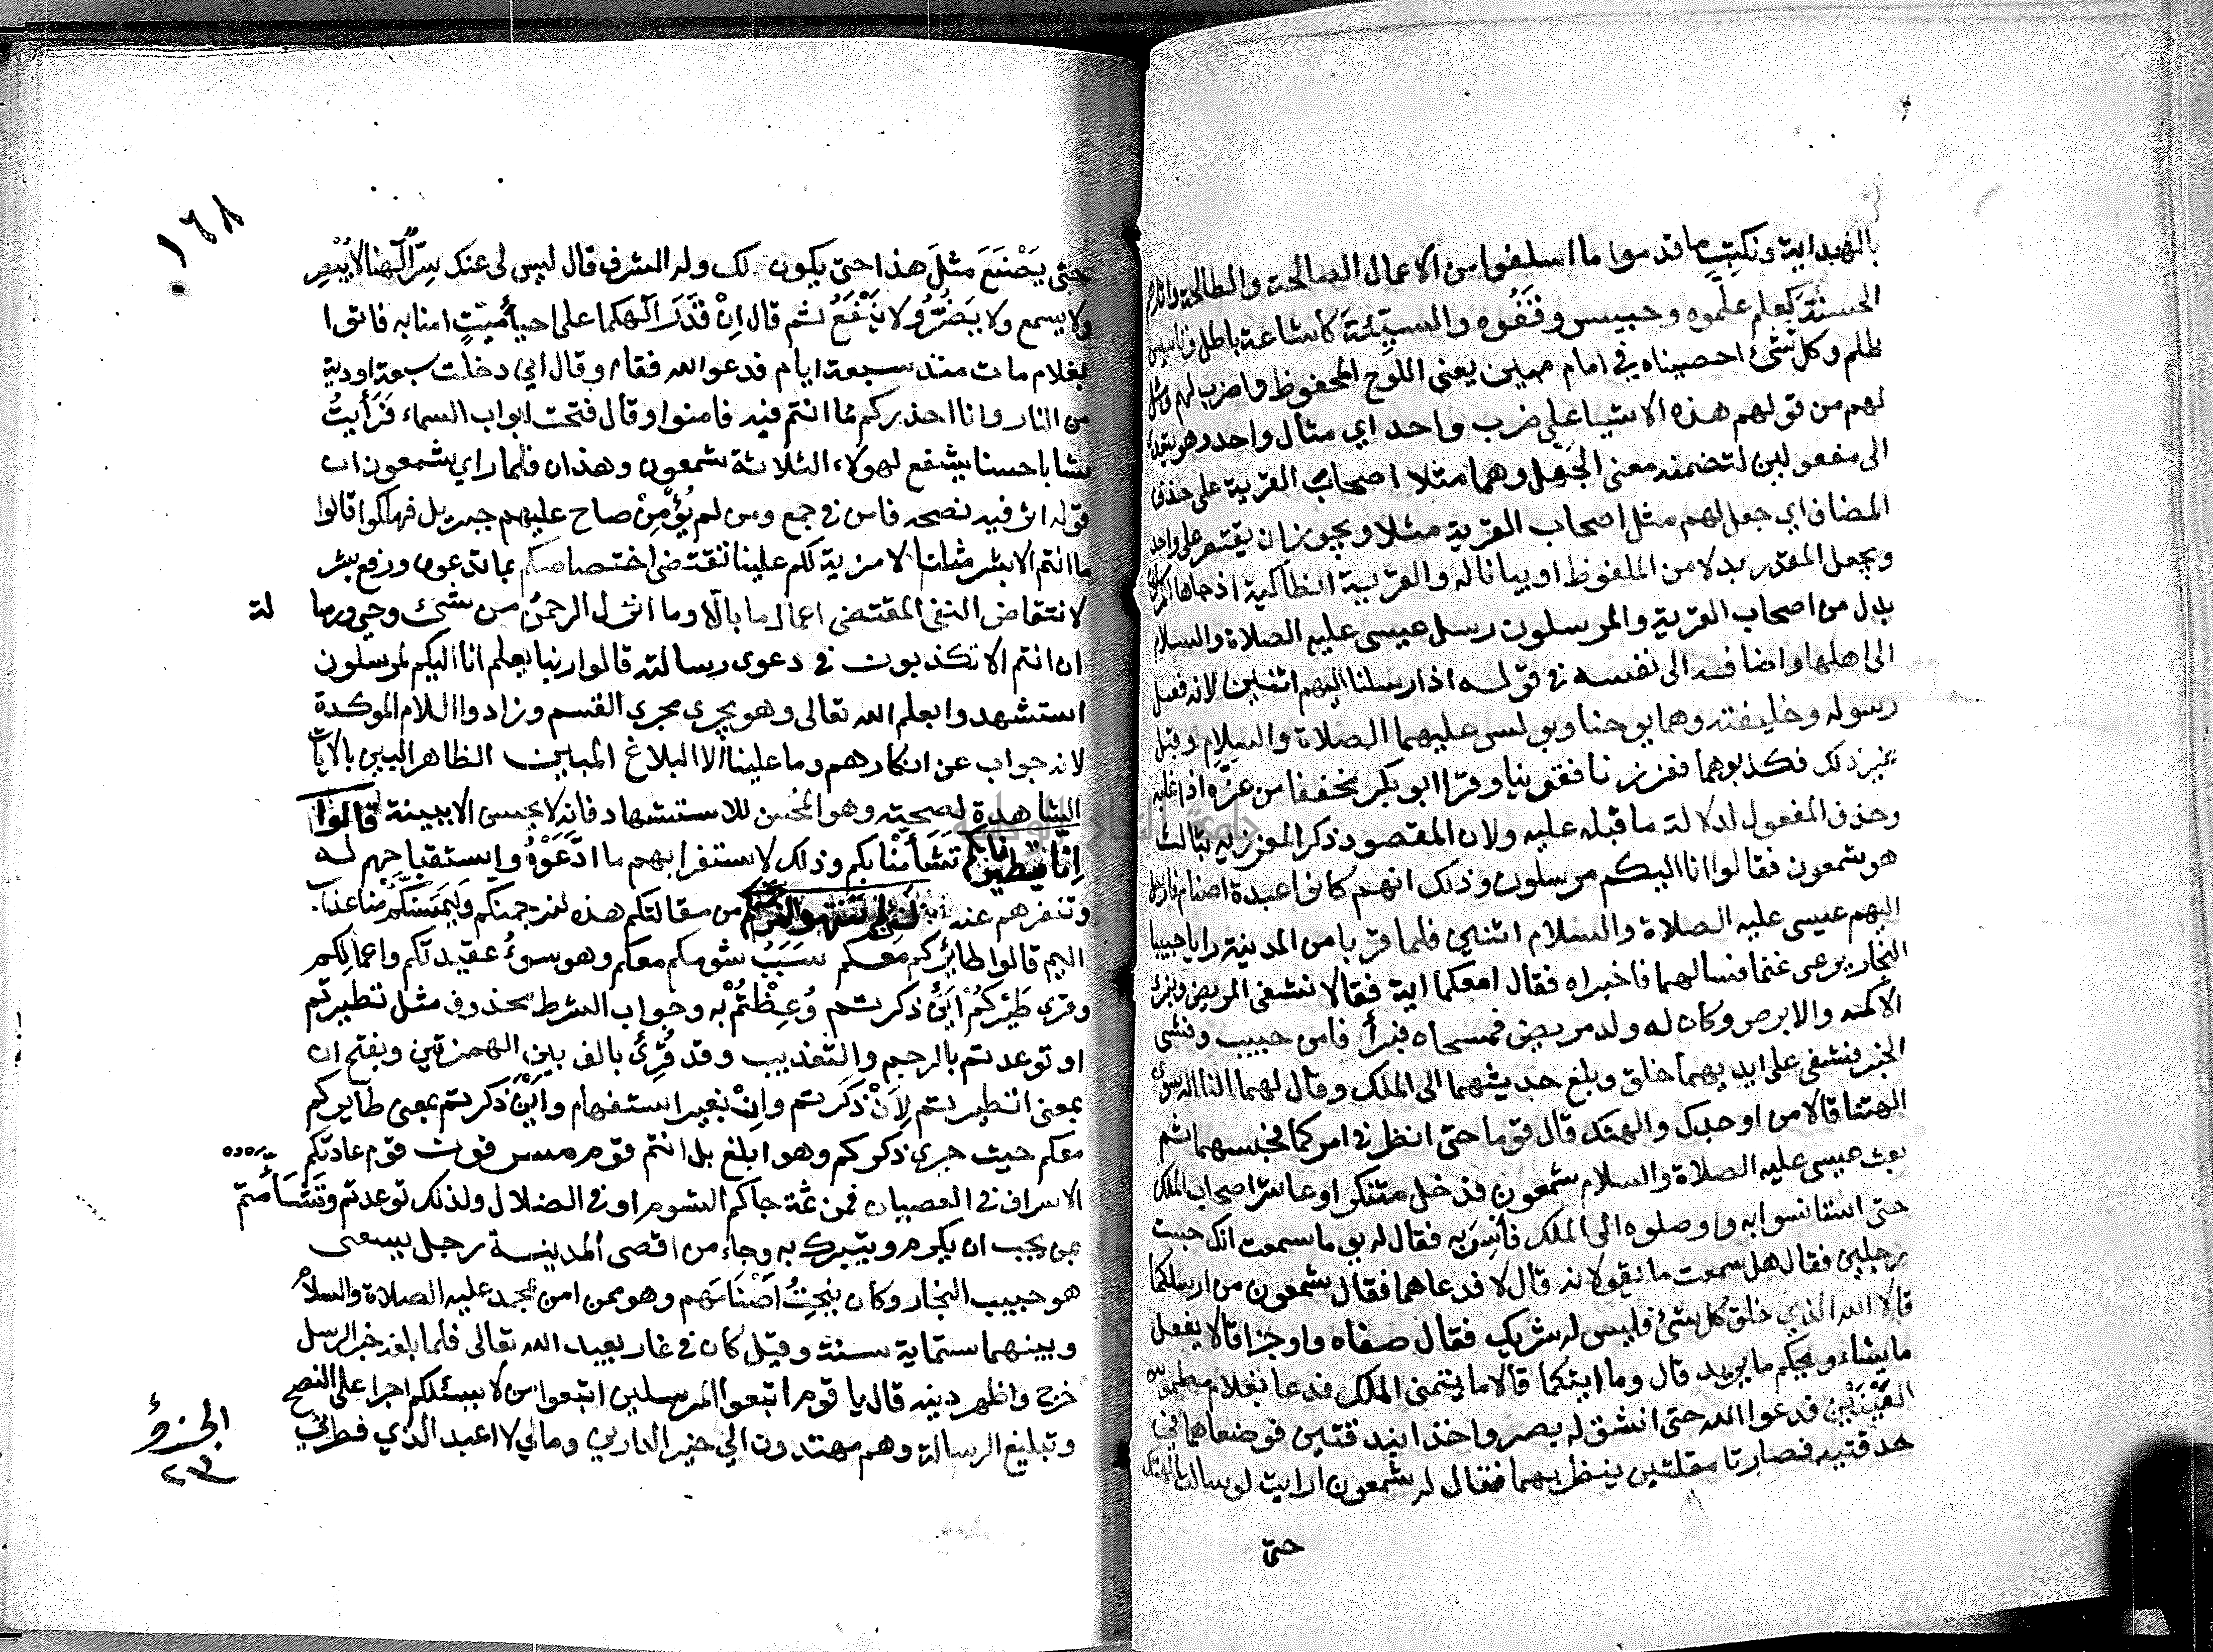 بالهداية ونكتب ما قدموا ما اسلفوا من الاعمال الصالحة والطالحة واثارهم
الحسنة كعلم علموه وحبيس وقفوه والسيئة كاشاعة باطل وتاسيس
ظلم وكل شئ احصيناه في امام مبين يعني اللوح المحفوظ واضرب لهم ومثل
لهم من قولهم هذه الاشيا على ضرب واحد اي مثال واحد وهو يتعدى
الى مفعولين لتضمنه معنى الجعل وهما مثلا اصحاب القرية على حذف
المضاف اي جعل لهم مثل اصحاب القرية مثلا ويجوز ان يقتصر على واحد
ويجعل المقدر بدلا من الملفوظ او بيانا له والقرية انطاكية اذ جاها المرسلون
بدل من اصحاب القرية والمرسلون رسل عيسى عليه الصلاة والسلام
الى اهلها واضافته الى نفسه في قوله اذ ارسلنا اليهم اثنين لانه فعل
رسوله وخليفته وهما يوحنا وبولس عليهما الصلاة والسلام وقيل
غير ذلك فكذبوهما فعززنا فقوينا وقرا ابو بكر مخففا من عزه اذا غلبه
وحذف المفعول لدلالة ما قبله عليه ولان المقصود ذكر المعزز به بثالث
هو شمعون فقالوا انا اليكم مرسلون وذلك انهم كانوا عبدة اصنام فارسل
اليهم عيسى عليه الصلاة والسلام اثنين فلما قربا من المدينة رايا حبيبا
النجار يرعى غنما فسالهما فاخبراه فقال امعكما اية فقالا نشفى المريض ونبرئ
الاكمه والابرص وكان له ولد مريض فمسحاه فبرأ فامن حبيب وفشى
الخبر فشفى على ايديهما خلق وبلغ حديثهما الى الملك وقال لهما النا اله سوى
الهتنا قالا من اوجدك والهتك قال قوما حتى انظر في امركما فحبسهما ثم
بعث عيسى عليه الصلاة والسلام شمعون فدخل متنكرا وعاشر اصحاب الملك
حتى استانسوا به واوصلوه الى الملك فأنس به فقال له يوما سمعت انك حبست
رجلين فقال هل سمعت ما يقولانه قال لا فدعاهما فقال شمعون من ارسلكما
قالا الله الذي خلق كل شئ فليس له شريك فقال صفاه واوجزا قالا يفعل
ما يشاء ويحكم ما يريد قال وما ايتكما قالا ما يتمنى الملك فدعا بغلام مطموس
العينين فدعوا الله حتى انشق له بصر واخذا بندقتين فوضعاهما في
حدقتيه فصارتا مقلتين ينظر بهما فقال له شمعون ارايت لو سالت الهتك
حتى
١٦٨
حتى يصنع مثل هذا حتى يكون لك وله الشرف قال ليس لى عنك سر الهنا لا يبصر
ولا يسمع ولا يضر ولا ينفع ثم قال ان قدر الهكما على احيا ميت امنا به فاتوا
بغلام مات منذ سبعة ايام فدعوا الله فقام وقال اني دخلت سبعة اودية
من النار وانا احذركم مما انتم فيه فامنوا وقال فتحت ابواب السماء فرأيت
شابا حسنا يشفع لهولاء الثلاثة شمعون وهذان فلما راى شمعون ان
قوله اثر فيه نصحه فامن في جمع ومن لم يؤمن صاح عليهم جبريل فهلكوا قالوا
ما انتم الا بشر مثلنا لا مزية لكم علينا تقتضى اختصاصكم بما تدعون ورفع بشر
لانتقاض النفى المقتضى اعمال ما بالا وما انزل الرحمن من شئ وحي ورسا لة
ان انتم الا تكذبون في دعوى رسالته قالوا ربنا يعلم انا اليكم لمرسلون
استشهدوا بعلم الله تعالى وهو يجرى مجرى القسم وزادوا اللام الموكدة
لانه جواب عن انكارهم وما علينا الا البلاغ المبين الظاهر البين بالايات
الشاهدة لصحته وهو المحسن للاستشهاد فانه لا يحسن الا ببينة قالوا
انا تطيرنا بكم تشأمنا بكم وذلك لاستغرابهم ما ادعوه واستقباحهم له
وتنفرهم عنه لئن لم تنتهوا من مقالتكم هذه لنرجمنكم وليمسنكم منا عذاب
اليم قالوا طائركم معكم سبب شومكم معكم وهو سوء عقيدتكم واعمالكم
وقرى طيركم أين ذكرتم وعظتم به وجواب الشرط محذوف مثل تطيرتم
او توعدتم بالرجم والتعذيب وقد قرئ بالف بين الهمزتين وبفتح ان
بمعنى اتطيرتم لأن ذكرتم وان بغير استفهام وأين ذكرتم بمعنى طايركم
معكم حيث جرى ذكركم وهو ابلغ بل انتم قوم مسرفون قوم عادتكم
الاسراف في العصيان فمن ثمة جاكم الشوم او في الضلال ولذلك توعدتم وتشأمتم
بمن يجب ان يكرم ويتبرك به وجاء من اقصى المدينة رجل يسعى
هو حبيب النجار وكان ينحت أصنامهم وهو ممن امن بمحمد عليه الصلاة والسلام
وبينهما ستماية سنة وقيل كان في غار يعبد الله تعالى فلما بلغه خبر الرسل
خرج واظهر دينه قال يا قوم اتبعوا المرسلين اتبعوا من لا يسئلكم اجرا على النصح
وتبليغ الرسالة وهم مهتدون الى خير الدارين ومالي لا اعبد الذي فطرني
الجزؤ
٢٣